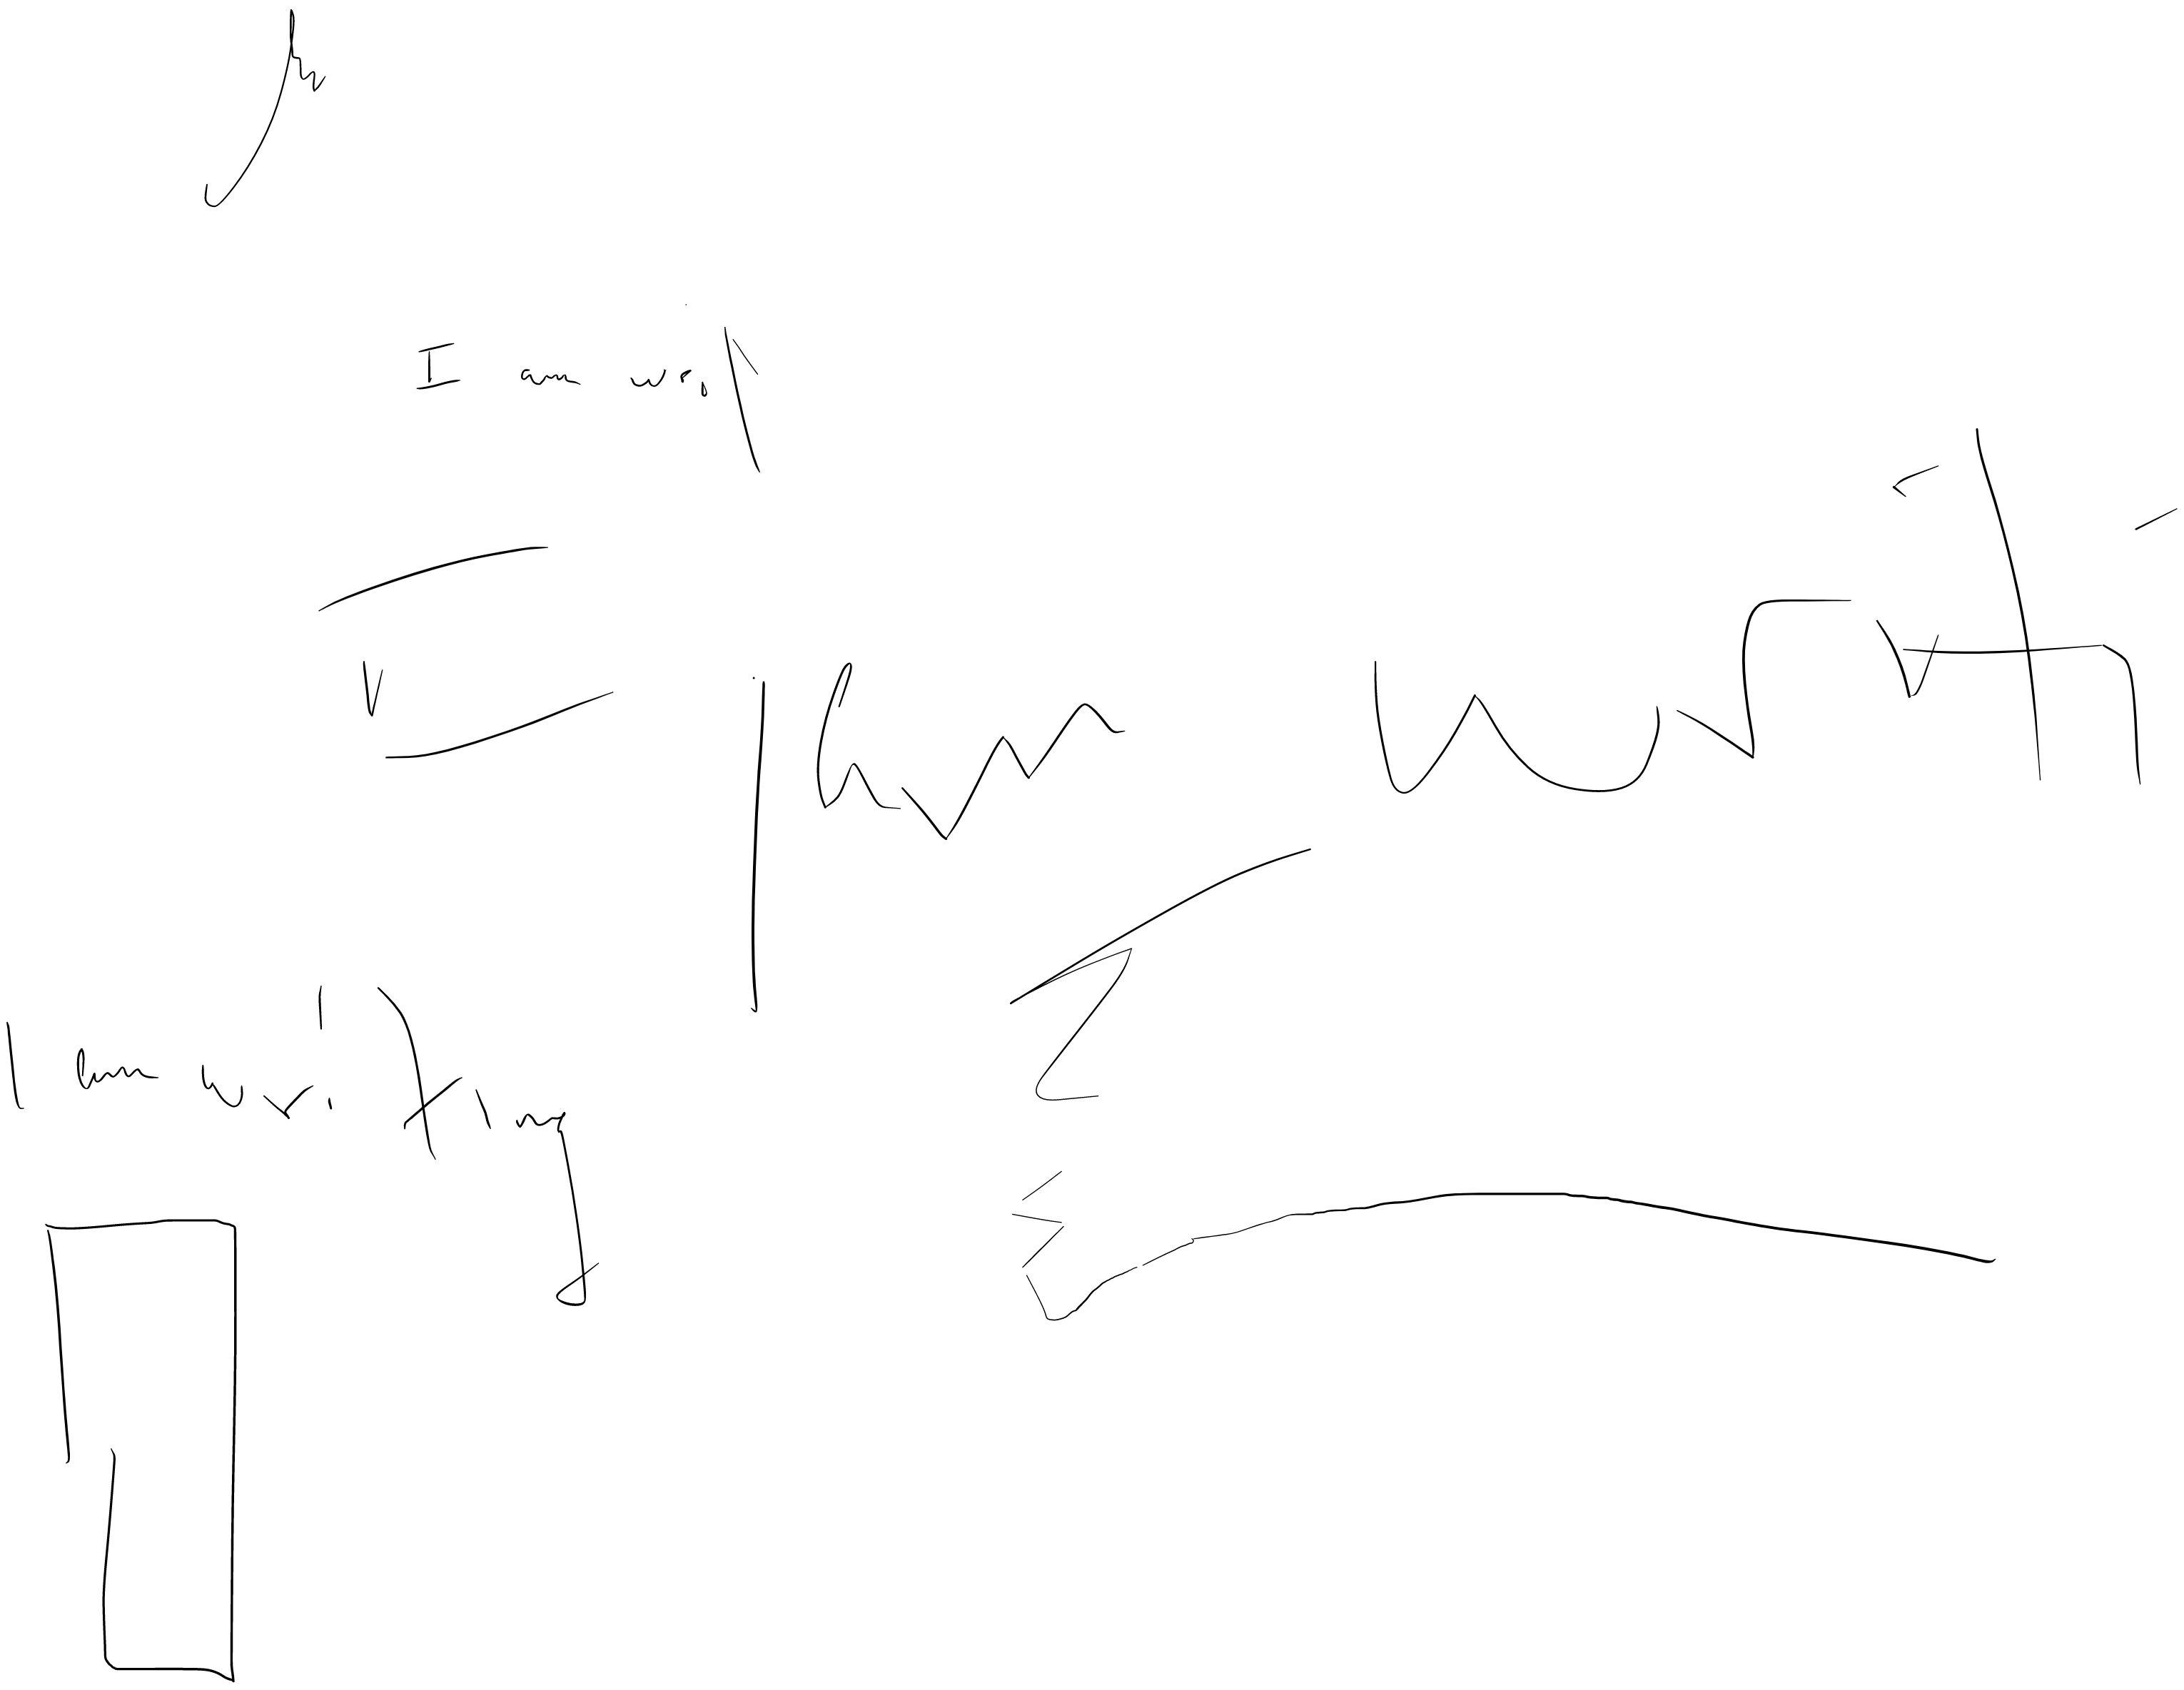 I am writ
I am writ
I am writing